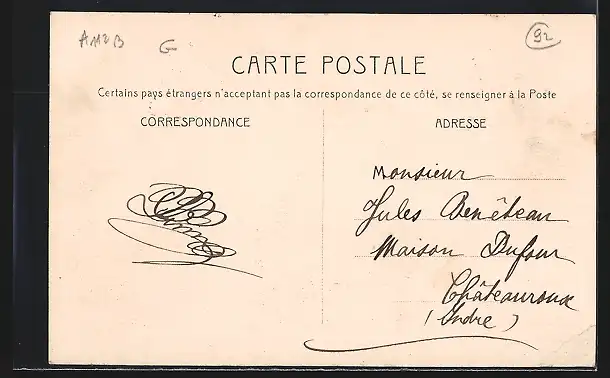 A112B G 92
CARTE POSTALE
Certains pays étrangers n'acceptant pas la correspondance de ce côté, se renseigner à la Poste
CORRESPONDANCE
ADRESSE
Monsieur
Jules Benêteau
Maison Dufour
Châteauroux
(Indre)